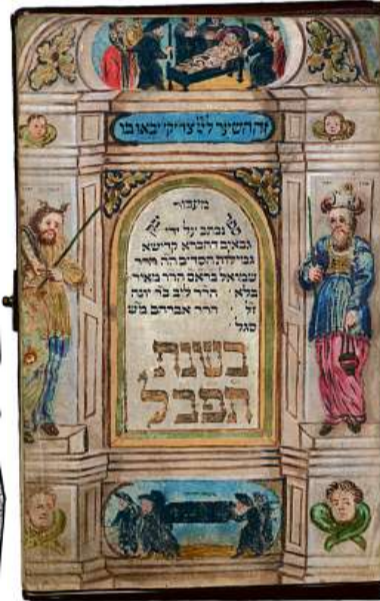 זה השער לה׳ צדיקי׳ יבאו בו
מעבור
נכתב על ידי
גבאים דחברא קדישא
גמילות חסדים הה
שמואל בראם הרר מאיר
בלא הרר ליב בר יונה
זל הרר אברהם מש
סגל
בשנת